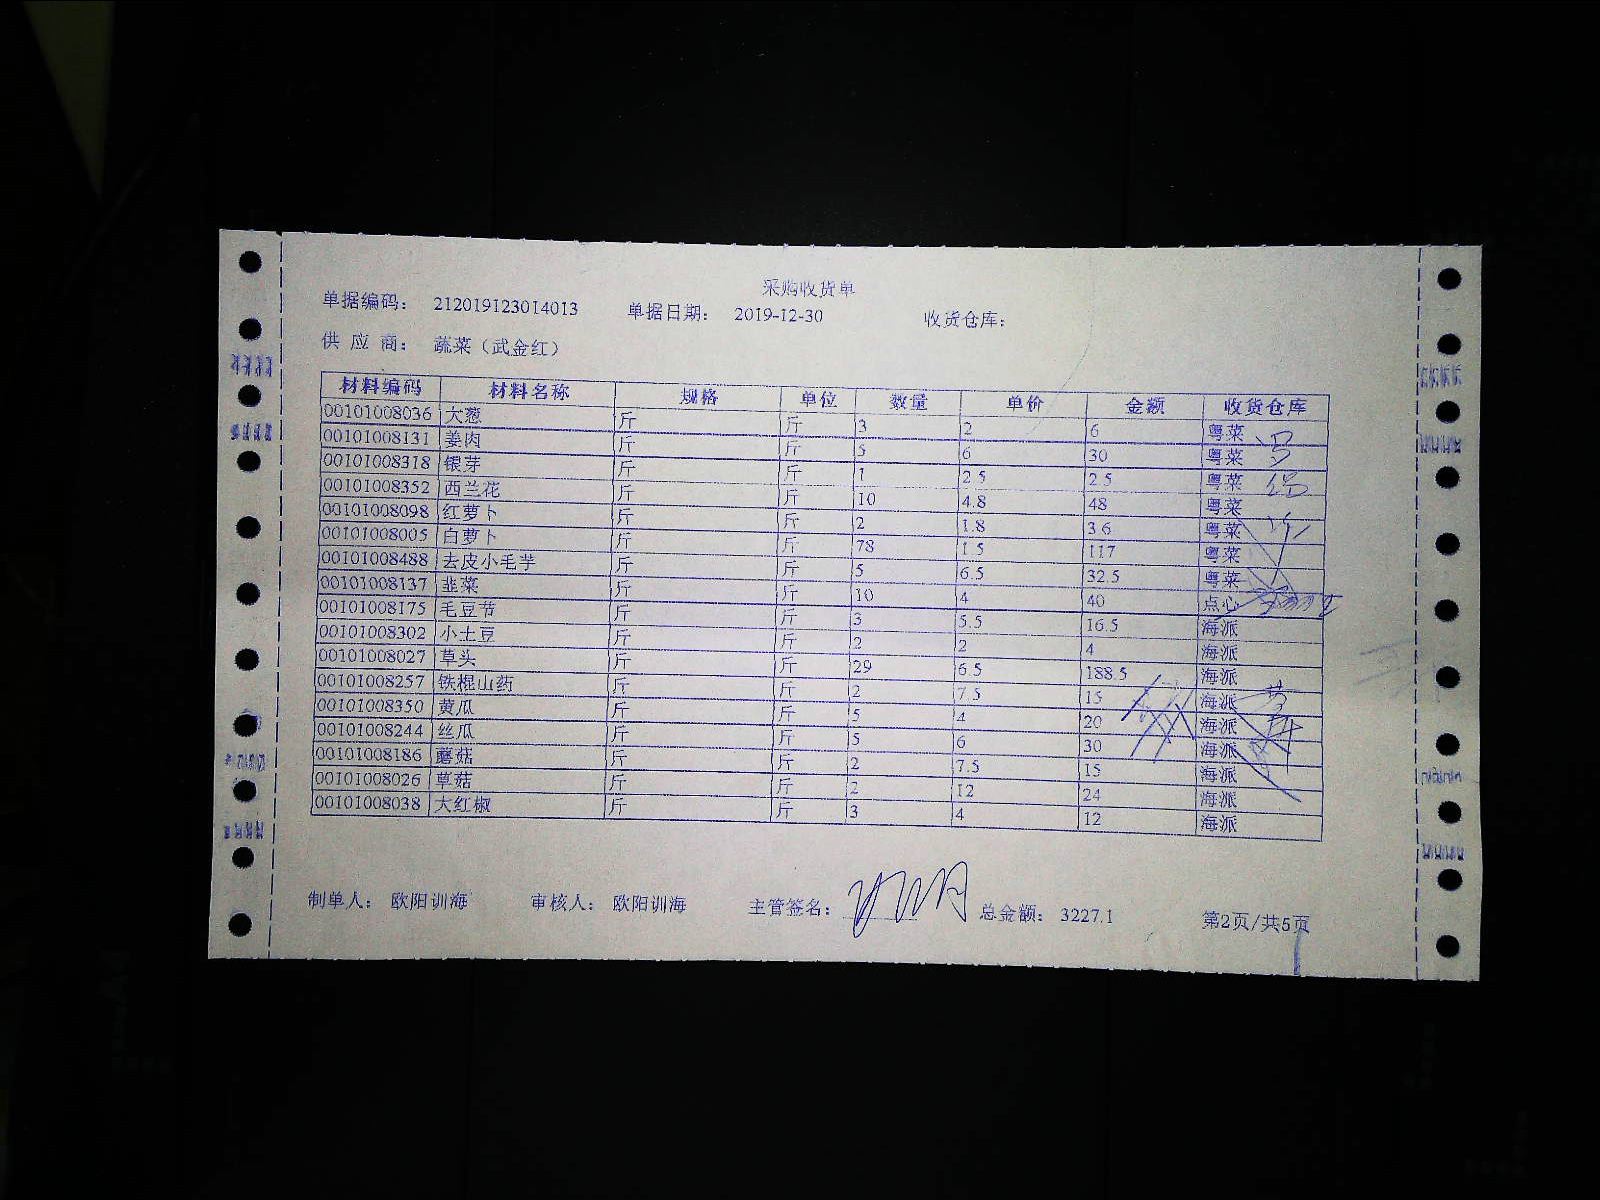 采购收货单
单据编码： 212019123014013 单据日期： 2019-12-30 收货仓库：
供 应 商： 蔬菜（武金红）
材料编码 材料名称 规格 单位 数量 单价 金额 收货仓库
00101008036 大葱 斤 斤 3 2 6 粤菜
00101008131 姜肉 斤 斤 5 6 30 粤菜
00101008318 银芽 斤 斤 1 2.5 2.5 粤菜
00101008352 西兰花 斤 斤 10 4.8 48 粤菜
00101008098 红萝卜 斤 斤 2 1.8 3.6 粤菜
00101008005 白萝卜 斤 斤 78 1.5 117 粤菜
00101008488 去皮小毛芋 斤 斤 5 6.5 32.5 粤菜
00101008137 韭菜 斤 斤 10 4 40 点心
00101008175 毛豆节 斤 斤 3 5.5 16.5 海派
00101008302 小土豆 斤 斤 2 2 4 海派
00101008027 草头 斤 斤 29 6.5 188.5 海派
00101008257 铁棍山药 斤 斤 2 7.5 15 海派
00101008350 黄瓜 斤 斤 5 4 20 海派
00101008244 丝瓜 斤 斤 5 6 30 海派
00101008186 蘑菇 斤 斤 2 7.5 15 海派
00101008026 草菇 斤 斤 2 12 24 海派
00101008038 大红椒 斤 斤 3 4 12 海派
制单人： 欧阳训海 审核人： 欧阳训海 主管签名： 总金额： 3227.1 第2页/共5页